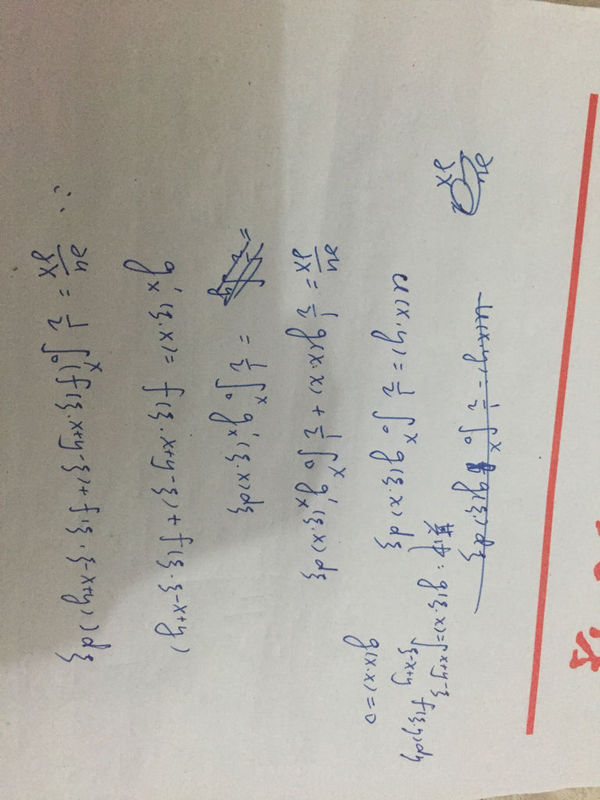 u(x,y) = 1/2 ∫₀ˣ g(ξ,x) dξ
u(x,y) = 1/2 ∫₀ˣ g(ξ,x) dξ 其中: g(ξ,x) = ∫_{ξ-x+y}^{x+y-ξ} f(ξ,η)dη
g(x,x) = 0
∂u/∂x = 1/2 g(x,x) + 1/2 ∫₀ˣ g'ₓ(ξ,x) dξ
= 1/2 ∫₀ˣ g'ₓ(ξ,x) dξ
g'ₓ(ξ,x) = f(ξ,x+y-ξ) + f(ξ,ξ-x+y)
∴ ∂u/∂x = 1/2 ∫₀ˣ (f(ξ,x+y-ξ) + f(ξ,ξ-x+y)) dξ